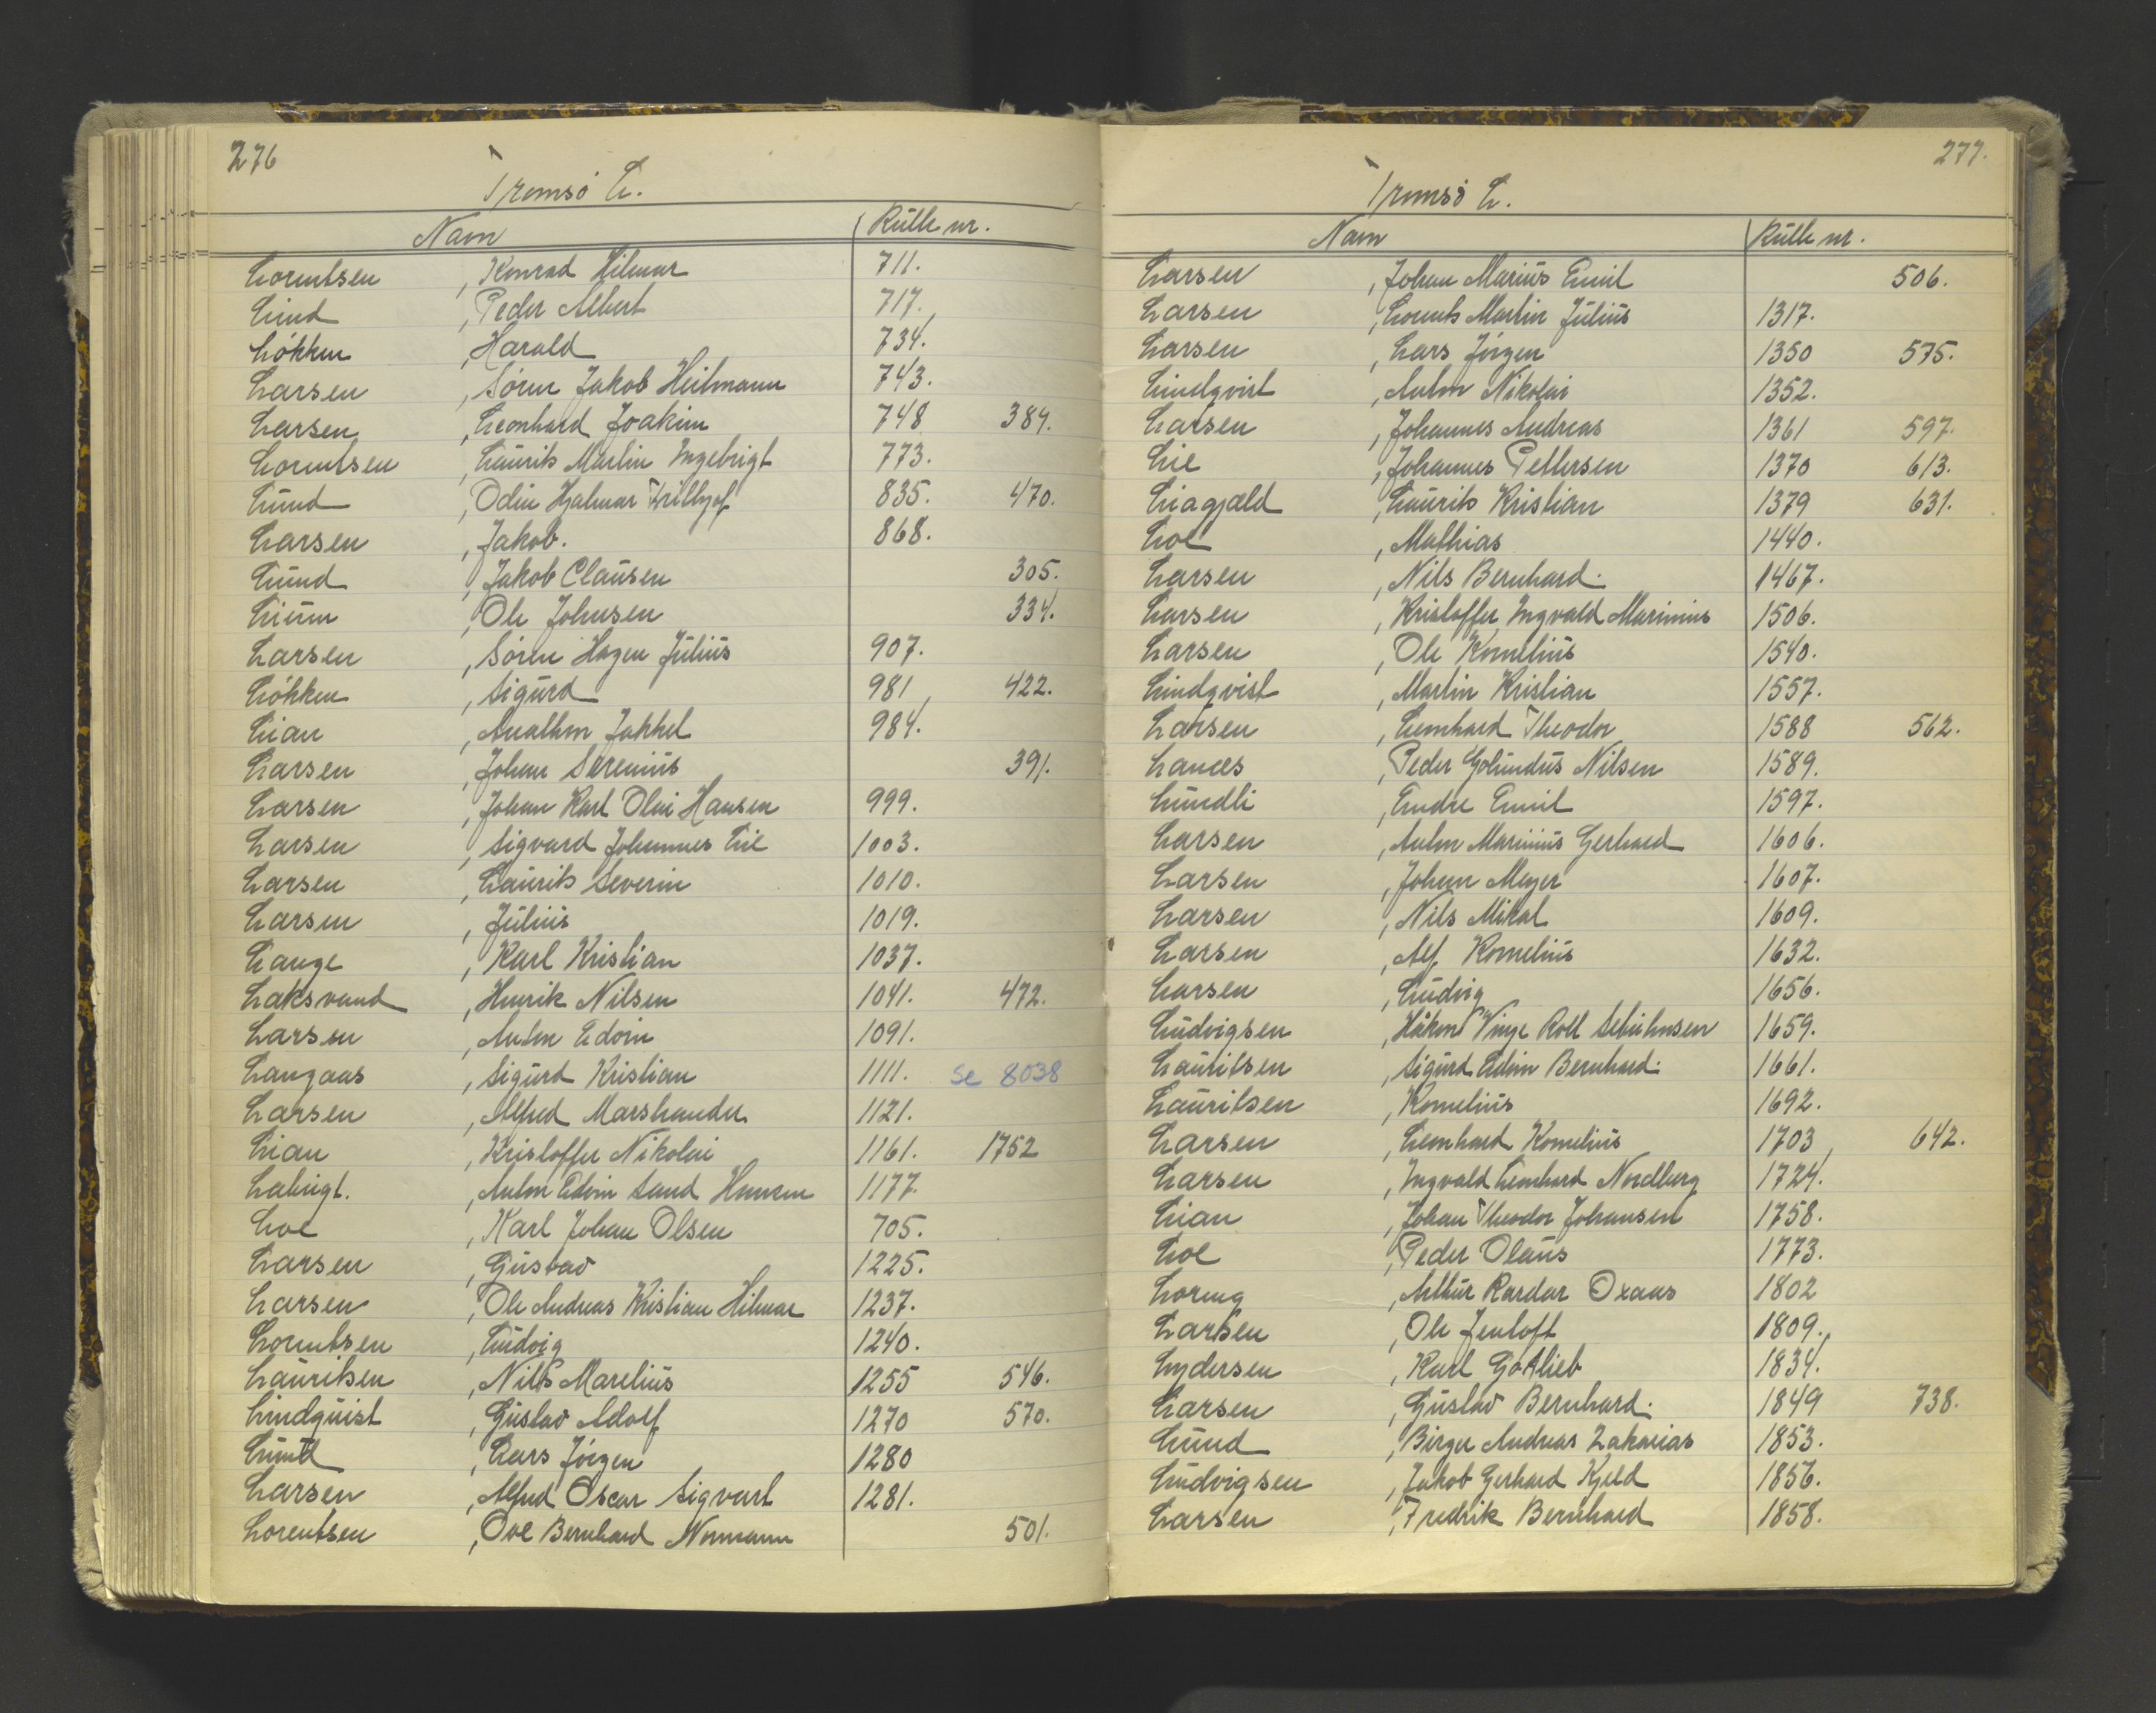 276
Tromsø L.
Navn Rulle nr.
Lorentsen , Konrad Hilmar 711.
Lund , Peder Albert 717.
Løkken , Harald 734.
Larsen , Søren Jakob Heitmann 743.
Larsen , Leonhard Joakim 748 384.
Lorentsen , Laurits Martin Ingebrigt 773.
Lund , Odin Hjalmar 835. 470.
Larsen , Jakob. 868.
Lund , Jakob Clausen 305.
Lium , Ole Johnsen 334.
Larsen , Søren Hagen Julius 907.
Løkken , Sigurd 981 422.
Lian , Anathon Jakkel 984.
Larsen , Johan Serenius 391.
Larsen , Johan Karl Olai Hansen 999.
Larsen , Sigvard Johannes Lie 1003.
Larsen , Laurits Severin 1010.
Larsen , Julius 1019.
Lange , Karl Kristian 1037.
Laksvand , Henrik Nilsen 1041. 472.
Larsen , Anton Edvin 1091.
Langaas , Sigurd Kristian 1111. se 8038
Larsen , Alfred Marstrander 1121.
Lian , Kristoffer Nikolai 1161. 1752
Labugt. , Anton Edvin Sand Hansen 1177.
Loe , Karl Johan Olsen 705.
Larsen , Gustav 1225.
Larsen , Ole Andreas Kristian Hilmar 1237.
Lorentsen , Ludvig 1240.
Lauritsen , Nils Marelius 1255 546.
Lindquist , Gustav Adolf 1270 570.
Lund , Lars Jørgen 1280
Larsen , Alfred Oscar Sigvart 1281.
Lorentsen , Ove Bernhard Normann 501.
277.
Tromsø L.
Navn Rulle nr.
Larsen , Johan Marius Emil 506.
Larsen , Lorents Martin Julius 1317.
Larsen , Lars Jørgen 1350 575.
Lindqvist , Anton Nikolai 1352.
Larsen , Johannes Andreas 1361 597.
Lie , Johannes Pettersen 1370 613.
Liagjæld , Laurits Kristian 1379 631.
Loe , Mathias 1440.
Larsen , Nils Bernhard. 1467.
Larsen , Kristoffer Ingvald Marinius 1506.
Larsen , Ole Kornelius 1540.
Lindqvist , Martin Kristian 1557.
Larsen , Leonhard Theodor 1588 562.
Lanæs , Peder Nilsen 1589.
Lundli , Endre Emil 1597.
Larsen , Anton Marinius Gerhard 1606.
Larsen , Johan Meyer 1607.
Larsen , Nils Mikal 1609.
Larsen , Alf Kornelius 1632.
Larsen , Ludvig 1656.
Ludvigsen , Håkon Vinje Roll 1659.
Lauritsen , Sigurd Edvin Bernhard. 1661.
Lauritsen , Kornelius 1692.
Larsen , Leonhard Kornelius 1703 642.
Larsen , Ingvald Leonhard Nordberg 1724.
Lian , Johan Theodor Johansen 1758.
Loe , Peder Olaus 1773.
Loreng , Arthur Rardar Oxaas 1802
Larsen , Ole Jentoft 1809.
Lydersen , Karl Gotlieb 1834.
Larsen , Gustav Bernhard. 1849 738.
Lund , Birger Andreas Zakarias 1853.
Ludvigsen , Jakob Gerhard Kjeld 1856.
Larsen , Fredrik Bernhard 1858.